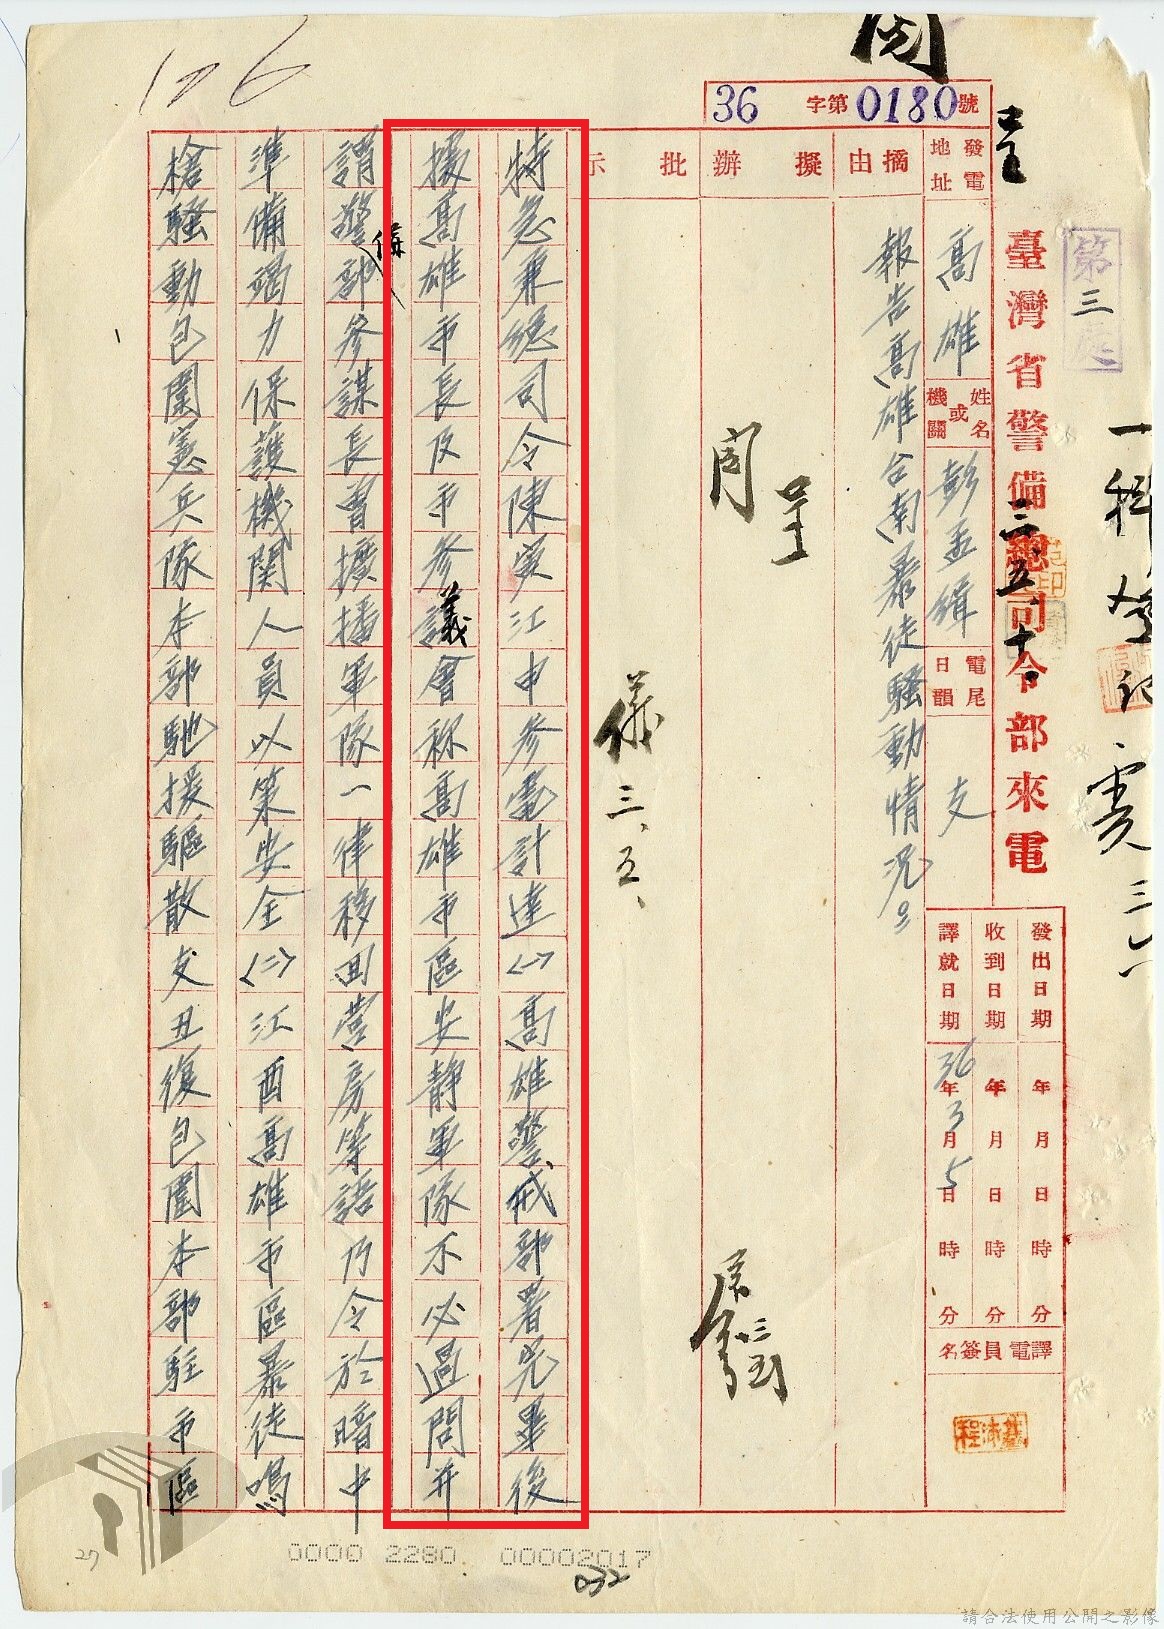 周
呈
36字第0180號
第三處
一科
臺灣省警備總司令部來電
三.五.
發電地址
高雄
姓名或機關
彭孟緝
電尾日韻
支
發出日期 年 月 日 時 分
收到日期 年 月 日 時 分
譯就日期 36年3月5日 時 分
譯電員簽名
摘由
報告高雄台南暴徒騷動情況
擬辦
周呈
批示
儀 三、五、
特急兼總司令陳寅江申參電計達㈠高雄警戒部署完畢後
據高雄市長及市參議會称高雄市區安靜軍隊不必過問并
謂警備部參謀長曾擴播軍隊一律移回營房等語乃令於暗中
準備竭力保護機関人員以策安全㈡江酉高雄市區暴徒鳴
槍騷動包圍憲兵隊本部馳援驅散支丑復包圍本部駐市區
106
27
0000 2280 00002017
032
請合法使用公開之影像